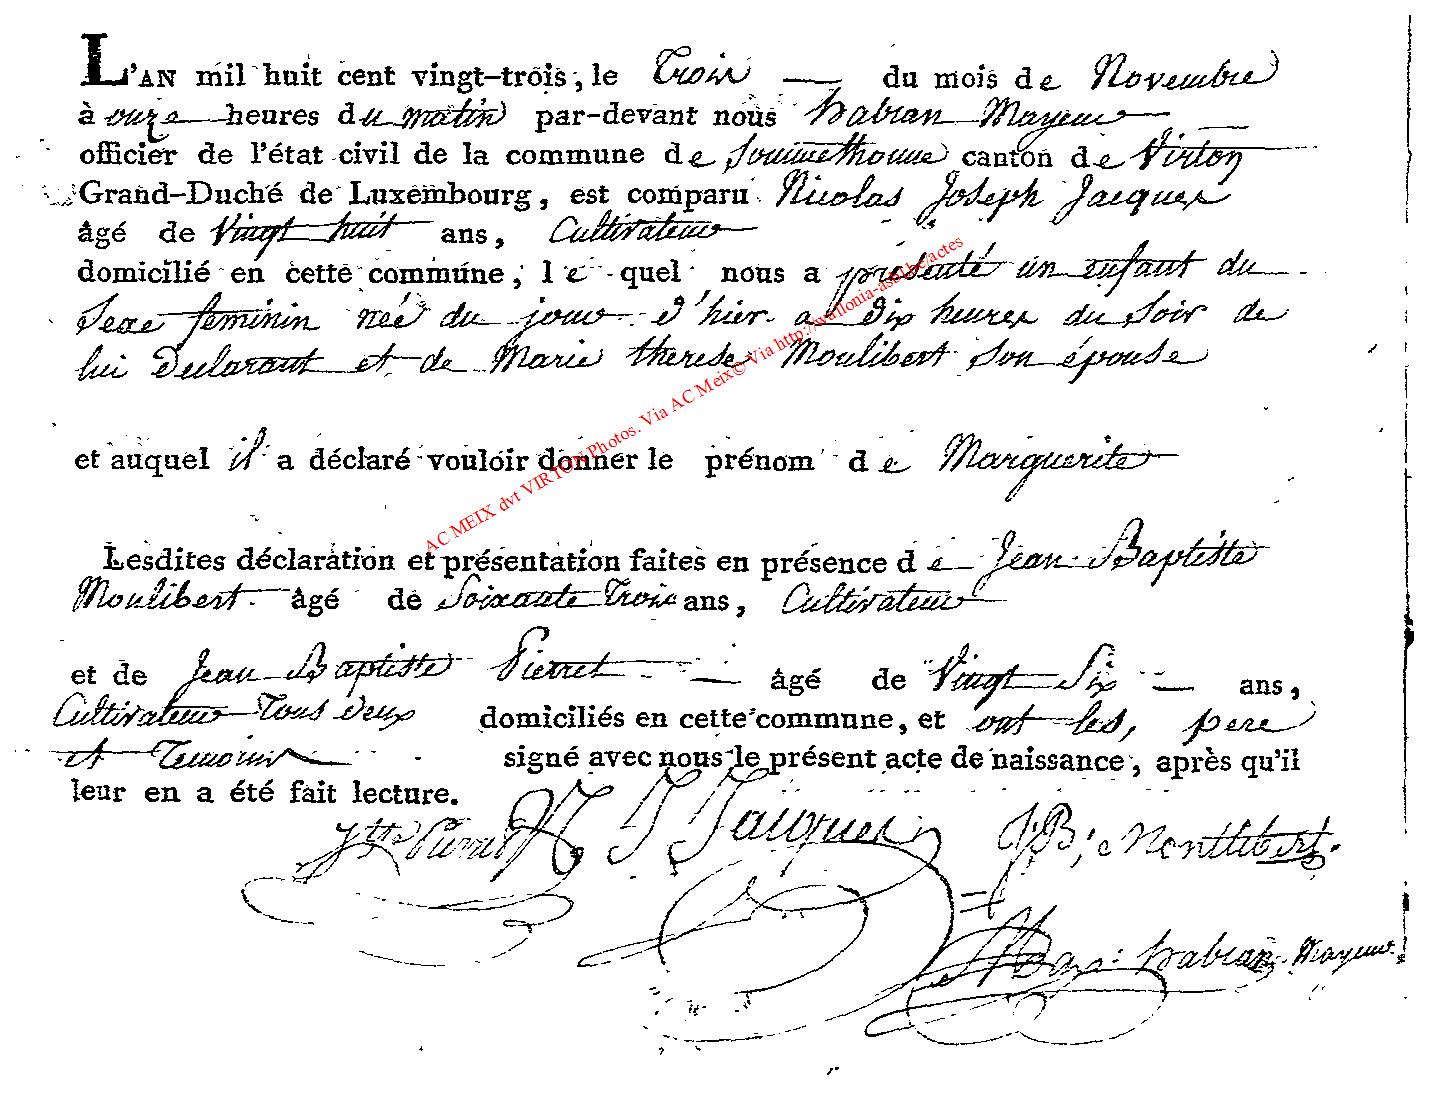 L'AN mil huit cent vingt-trois, le Trois — du mois de Novembre
à onze heures du matin par-devant nous habran Mayeur
officier de l'état civil de la commune de Sommethonne canton de Virton
Grand-Duché de Luxembourg, est comparu Nicolas Joseph Jacques
âgé de Vingt huit ans, Cultivateur
domicilié en cette commune, le quel nous a présenté un enfant du
Sexe feminin née du jour d'hier a Dix heures du Soir de
lui Declarant et de Marie therese Moulibert son épouse
et auquel il a déclaré vouloir donner le prénom de Marguerite
Lesdites déclaration et présentation faites en présence de Jean Baptiste
Moulibert âgé de Soixante Trois ans, Cultivateur
et de Jean Baptiste Pierret — âgé de Vingt Six — ans,
Cultivateur Tous deux domiciliés en cette commune, et ont les, pere
et Temoins signé avec nous le présent acte de naissance, après qu'il
leur en a été fait lecture.
Jtte Pierret N J Jacques J,B, Montlibert.
habran Mayeur
AC MEIX dvt VIRTON Photos. Via AC Meix© Via http://wallonia-asbl.be/actes